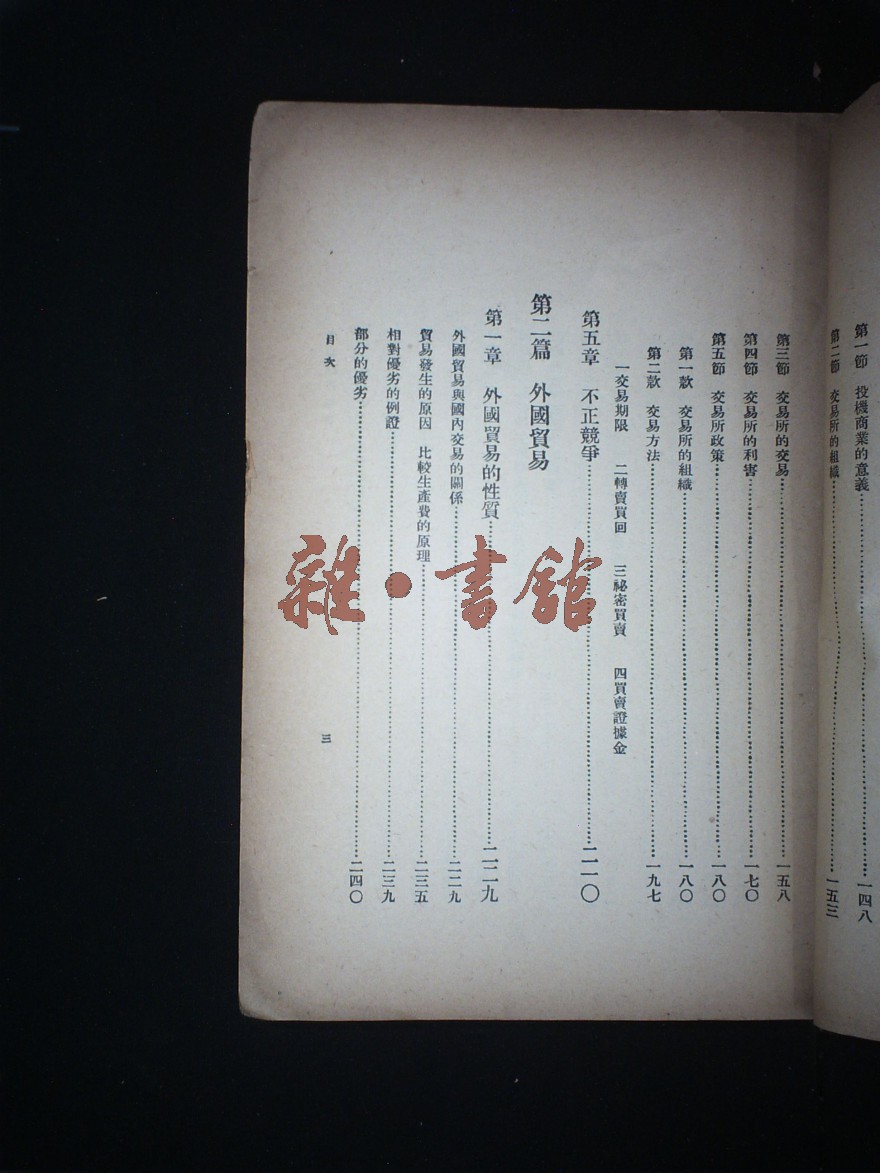 第一節　投機商業的意義……一四八
第二節　交易所的組織……一五三
第三節　交易所的交易……一五八
第四節　交易所的利害……一七〇
第五節　交易所政策……一八〇
第一款　交易所的組織……一八〇
第二款　交易方法……一九七
一交易期限　二轉賣買回　三祕密買賣　四買賣證據金
第五章　不正競爭……二一〇
第二篇　外國貿易
第一章　外國貿易的性質……二二九
外國貿易與國內交易的關係……二二九
貿易發生的原因　比較生產費的原理……二三五
相對優劣的例證……二三九
部分的優劣……二四〇
目次
三
雜·書館